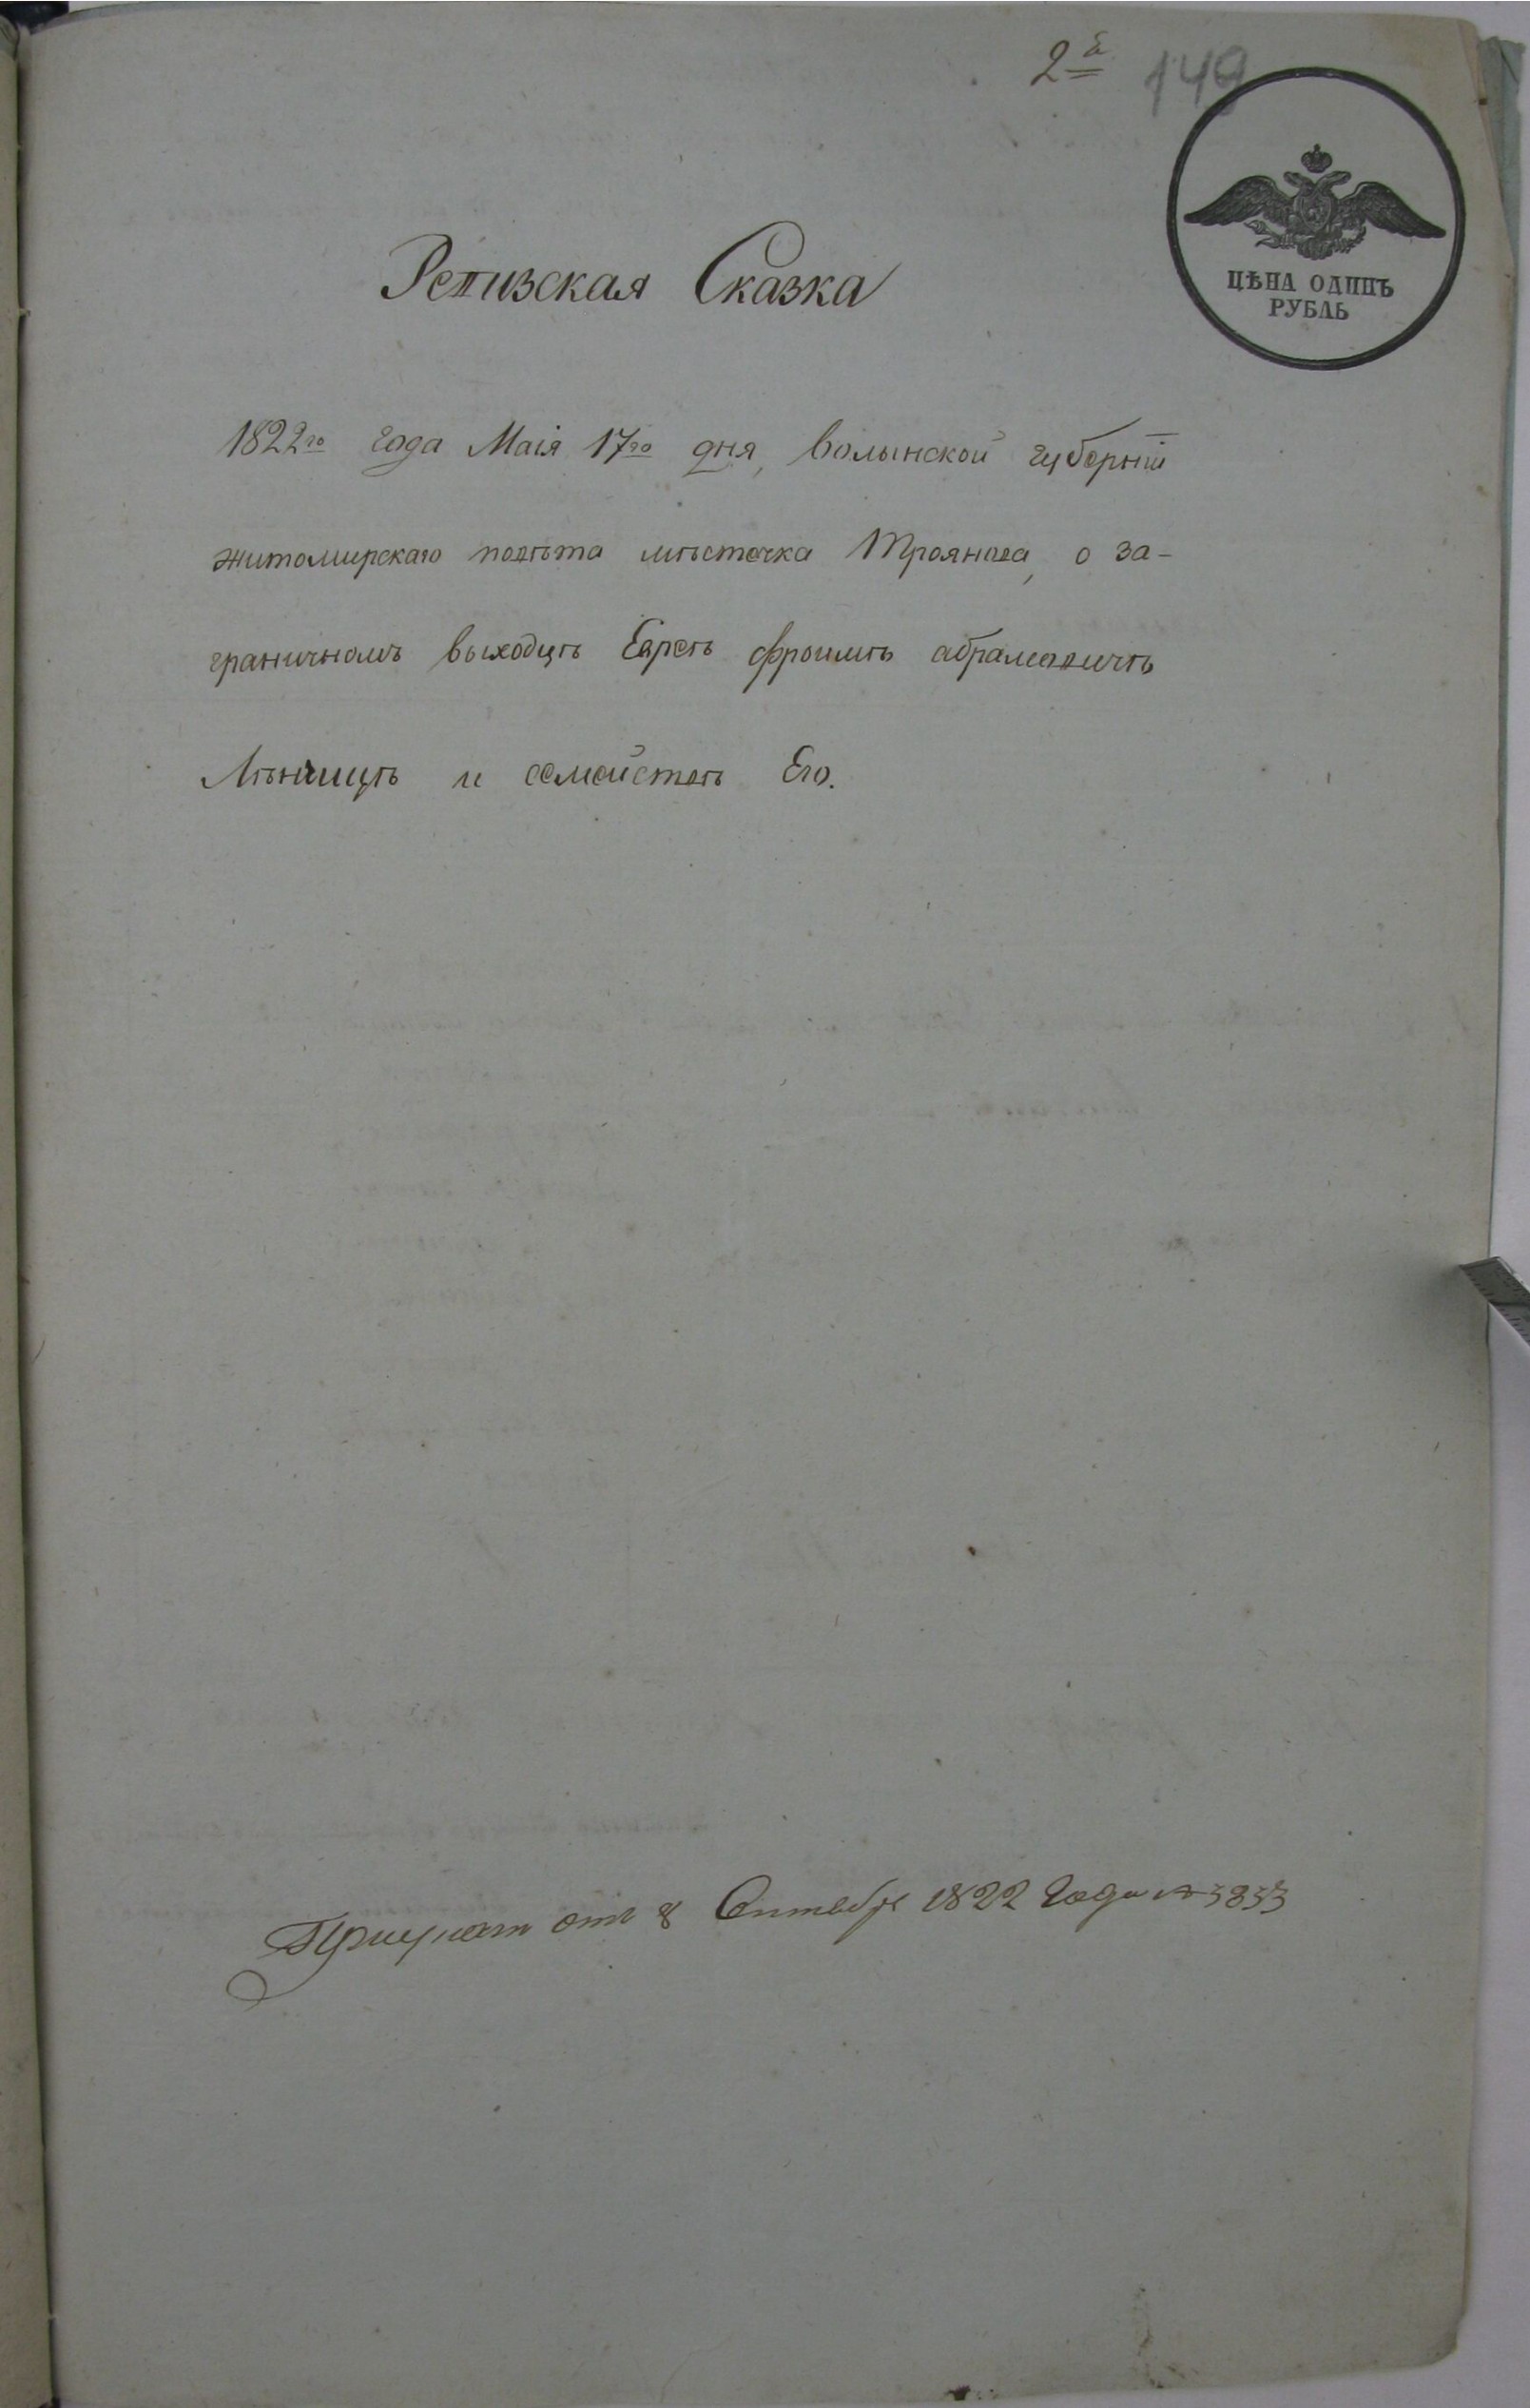 2я 149
ЦѢНА ОДИНЪ
РУБЛЬ
Ревизская Сказка
1822го года Маія 17го дня, волынской губерніи
житомирскаго повѣта мѣстечка Троянова, о за-
граничномъ выходцѣ Евреѣ фроимѣ абрамовичѣ
и семействѣ Его.
отъ 8 Октября 1822 года № 3833